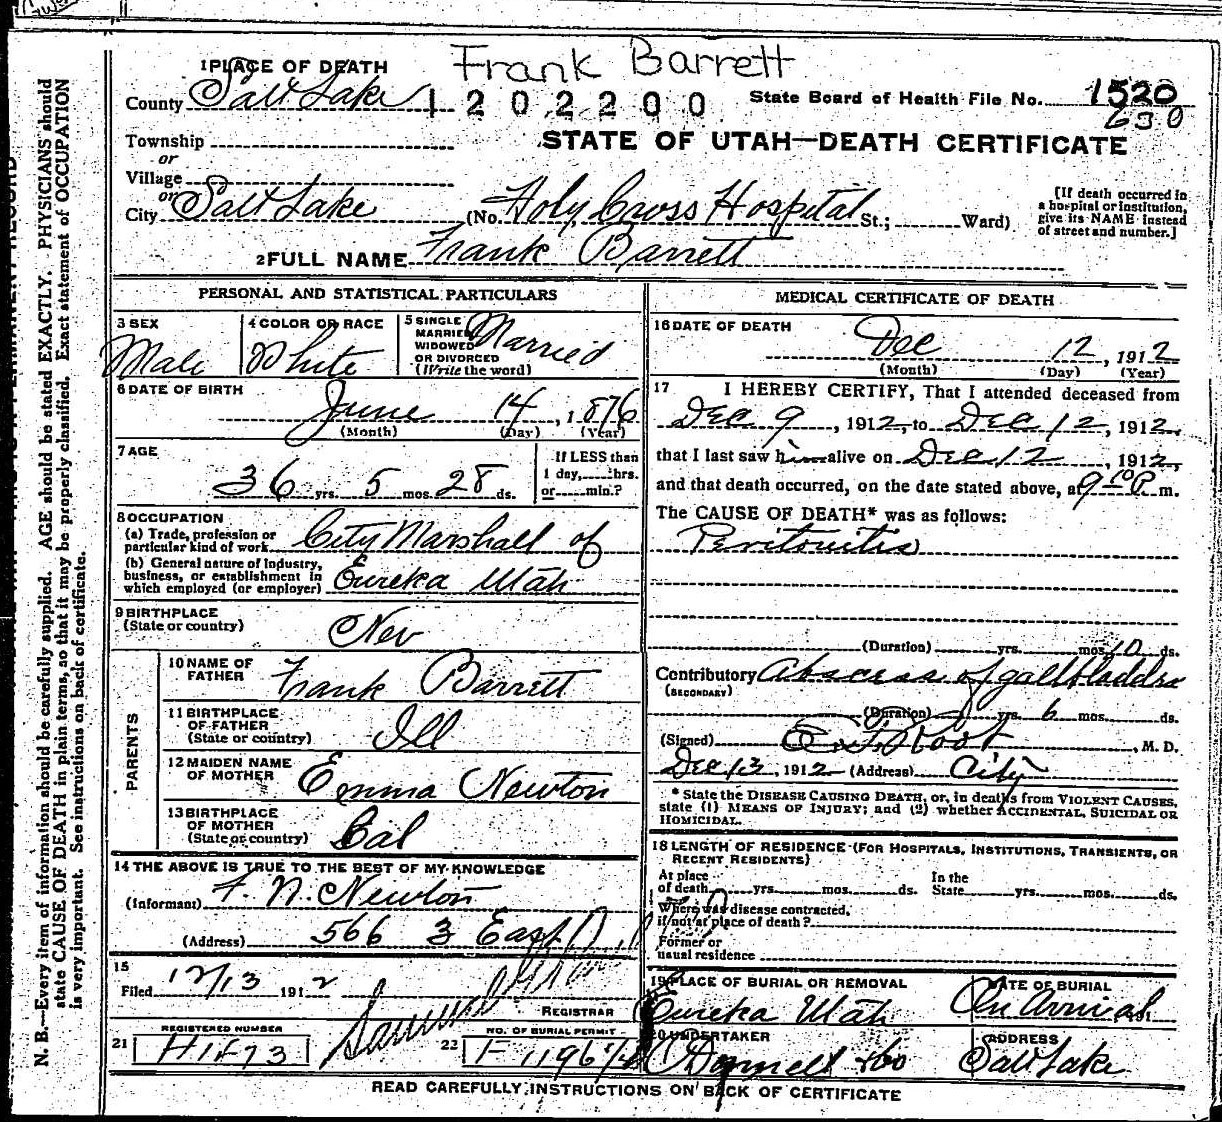 Frank Barrett
1 PLACE OF DEATH
County Salt Lake 1202200 State Board of Health File No. 1520
630
Township
or
STATE OF UTAH—DEATH CERTIFICATE
Village
or
City Salt Lake (No. Holy Cross Hospital St.; Ward)
[If death occurred in a hospital or institution, give its NAME instead of street and number.]
2 FULL NAME Frank Barrett
PERSONAL AND STATISTICAL PARTICULARS
3 SEX
Male
4 COLOR OR RACE
White
5 SINGLE
MARRIED
WIDOWED
OR DIVORCED
(Write the word)
Married
6 DATE OF BIRTH
June 14, 1876
(Month) (Day) (Year)
7 AGE
36 yrs. 5 mos. 28 ds.
If LESS than
1 day, hrs.
or min.?
8 OCCUPATION
(a) Trade, profession or
particular kind of work City Marshall of
(b) General nature of Industry,
business, or establishment in
which employed (or employer) Eureka Utah
9 BIRTHPLACE
(State or country)
Nev
PARENTS
10 NAME OF
FATHER
Frank Barrett
11 BIRTHPLACE
OF FATHER
(State or country)
Ill
12 MAIDEN NAME
OF MOTHER
Emma Newton
13 BIRTHPLACE
OF MOTHER
(State or country)
Cal
14 THE ABOVE IS TRUE TO THE BEST OF MY KNOWLEDGE
(Informant) F. N. Newton
(Address) 566 3 East
15
Filed 12/13 1912
REGISTRAR
REGISTERED NUMBER
21
NO. OF BURIAL PERMIT
22
MEDICAL CERTIFICATE OF DEATH
16 DATE OF DEATH
Dec 12, 1912
(Month) (Day) (Year)
17 I HEREBY CERTIFY, That I attended deceased from
Dec 9, 1912, to Dec 12, 1912,
that I last saw him alive on Dec 12, 1912,
and that death occurred, on the date stated above, at 9 10 P m.
The CAUSE OF DEATH* was as follows:
Peritonitis
(Duration) yrs. mos. 10 ds.
Contributory Abscess of gallbladder
(SECONDARY)
(Duration) yrs. 6 mos. ds.
(Signed) Root, M. D.
Dec 13, 1912 (Address) City
* State the DISEASE CAUSING DEATH, or, in deaths from VIOLENT CAUSES,
state (1) MEANS OF INJURY; and (2) whether ACCIDENTAL, SUICIDAL OR
HOMICIDAL.
18 LENGTH OF RESIDENCE (FOR HOSPITALS, INSTITUTIONS, TRANSIENTS, OR
RECENT RESIDENTS)
At place
of death yrs. mos. ds.
In the
State yrs. mos. ds.
Where was disease contracted,
if not at place of death?
Former or
usual residence
19 PLACE OF BURIAL OR REMOVAL
Eureka Utah
DATE OF BURIAL
On Arrival 191
20 UNDERTAKER
O'Donnell & Co
ADDRESS
Salt Lake
READ CAREFULLY INSTRUCTIONS ON BACK OF CERTIFICATE
N. B.—Every item of information should be carefully supplied. AGE should be stated EXACTLY. PHYSICIANS should
state CAUSE OF DEATH in plain terms, so that it may be properly classified. Exact statement of OCCUPATION
is very important. See instructions on back of certificate.